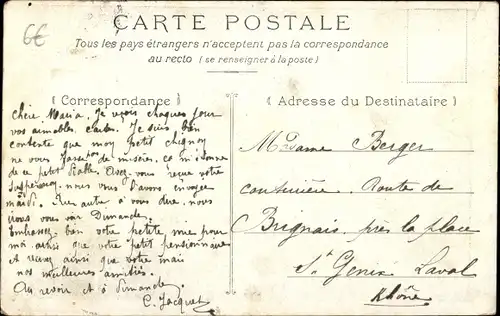 6€
CARTE POSTALE
Tous les pays étrangers n'acceptent pas la correspondance
au recto (se renseigner à la poste)
(Correspondance)
(Adresse du Destinataire)
Chère Maria. Je reçois chaques jour
vos aimables cartes. Je suis bien
contente que mon petit chignoy
ne vous fasse pas de misères, ça m'étonne
de ce petit diable. Avez vous reçue votre
nous vous l'avons envoyée
mardi. Rien autre à vous dire, nous
irons vous voir Dimanche.
Embrassez bien votre petite mie pour
moi ainsi que votre petit pensionnaire
et recevez ainsi que votre mari
nos meilleures amitiés.
Au revoir et à dimanche
C. Jacquet
Madame Berger
couturière Route de
Brignais près la place
St Genis Laval
Rhône